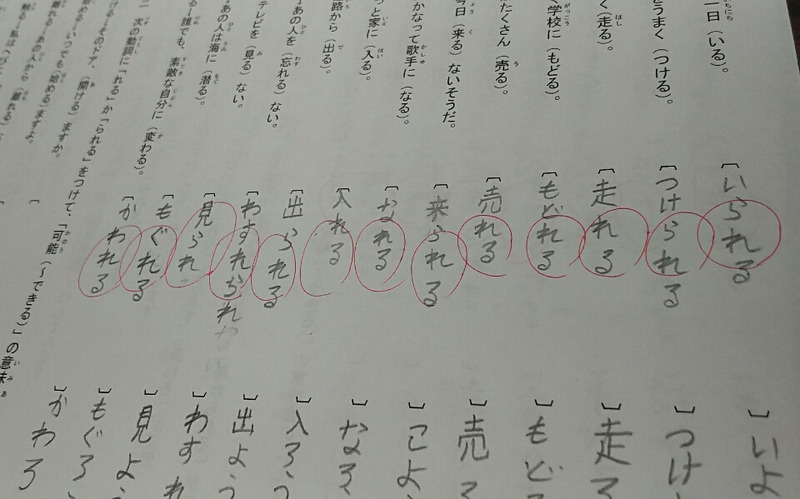 一日(いる)。
うまく(つける)。
く(走る)。
学校に(もどる)。
たくさん(売る)。
今日(来る)ないそうだ。
かなって歌手に(なる)。
っと家に(入る)。
路から(出る)。
あの人を(忘れる)ない。
テレビを(見る)ない。
あの人は海に(潜る)。
誰でも、素敵な自分に(変わる)。
次の動詞に「れる」か「られる」をつけて、「可能(〜できる)」の意味
そのドア、(開ける)ますか。
いつでも(始める)ますよ。
あの人から(離れる)
[いられる
[つけられる
[走れる
[もどれる
[売れる
[来られる
[なれる
[入れる
[出られる
[わすれられ
[見られ
[もぐれる
[かわれる
]いよ
]つけ
]走ろ
]もどろ
]売ろ
]こよ
]なろ
]入ろう
]出よう
]わすれ
]見よう
]もぐろう
]かわろ